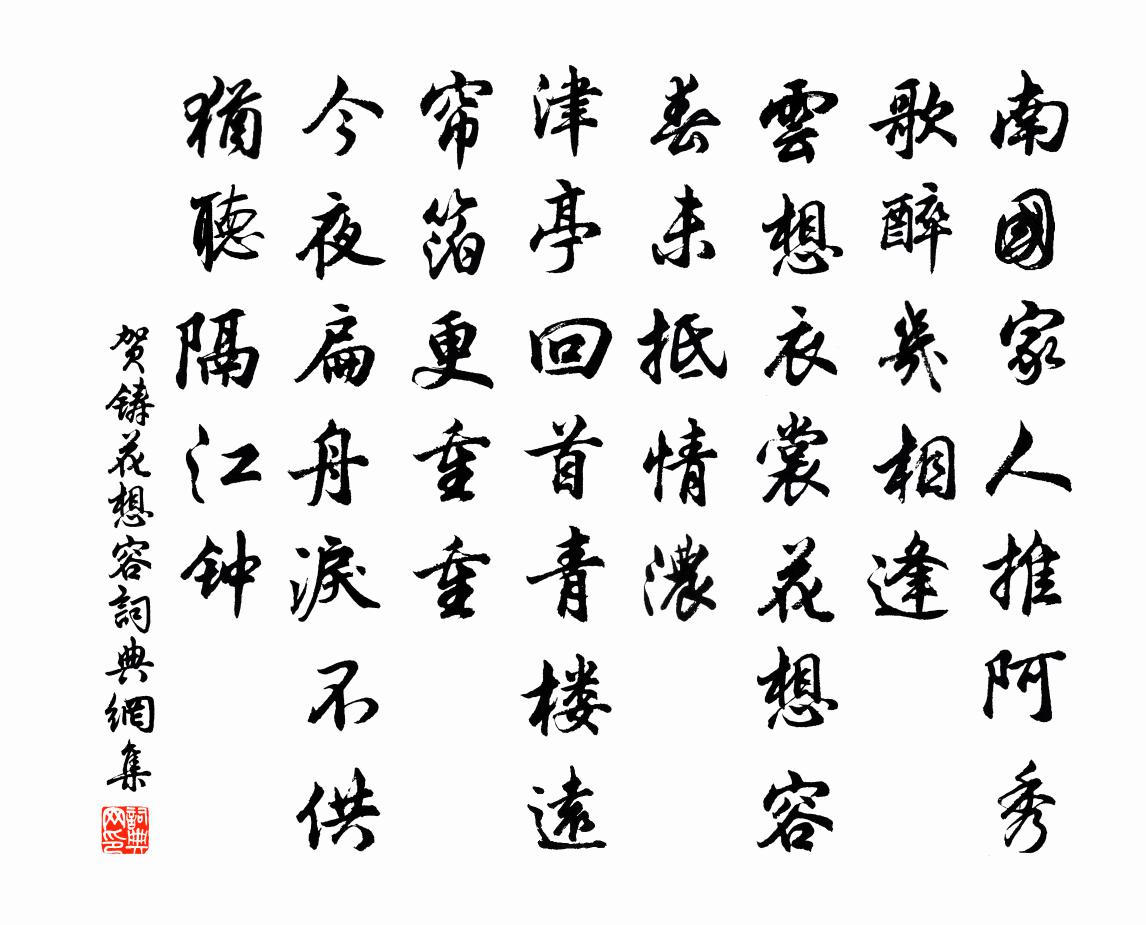 南國家人推阿秀
歌醉幾相逢
雲想衣裳花想容
春未抵情濃
津亭回首青楼遠
帘箔更重重
今夜扁舟淚不供
猶聽隔江钟
贺鑄花想容詞典網集
詞典网印